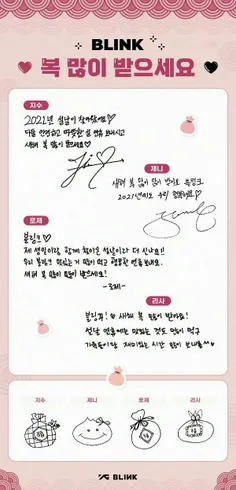 BLINK
복 많이 받으세요
지수
2021년 설날이 찾아왔어요♡
다들 안전하고 따뜻한 설 연휴 보내시고
새해 복 많이 받으세요♡
제니
새해 복 많이 많이 받아요
2021년에도
로제
블링크♡
제 생일이랑 함께 찾아온 설날이라 더 신나요!!
우리 블링크 맛있는 거 많이 먹고 행복한 연휴 보내요.
새해 복 많이 많이 받으세요!
-로제-
리사
블링크! ♡ 새해 복 많이 받아요!
설날 연휴에는 맛있는 것도 많이 먹구
가족들이랑 재미있는 시간 많이 보내용
지수 제니 로제 리사
YG BLINK